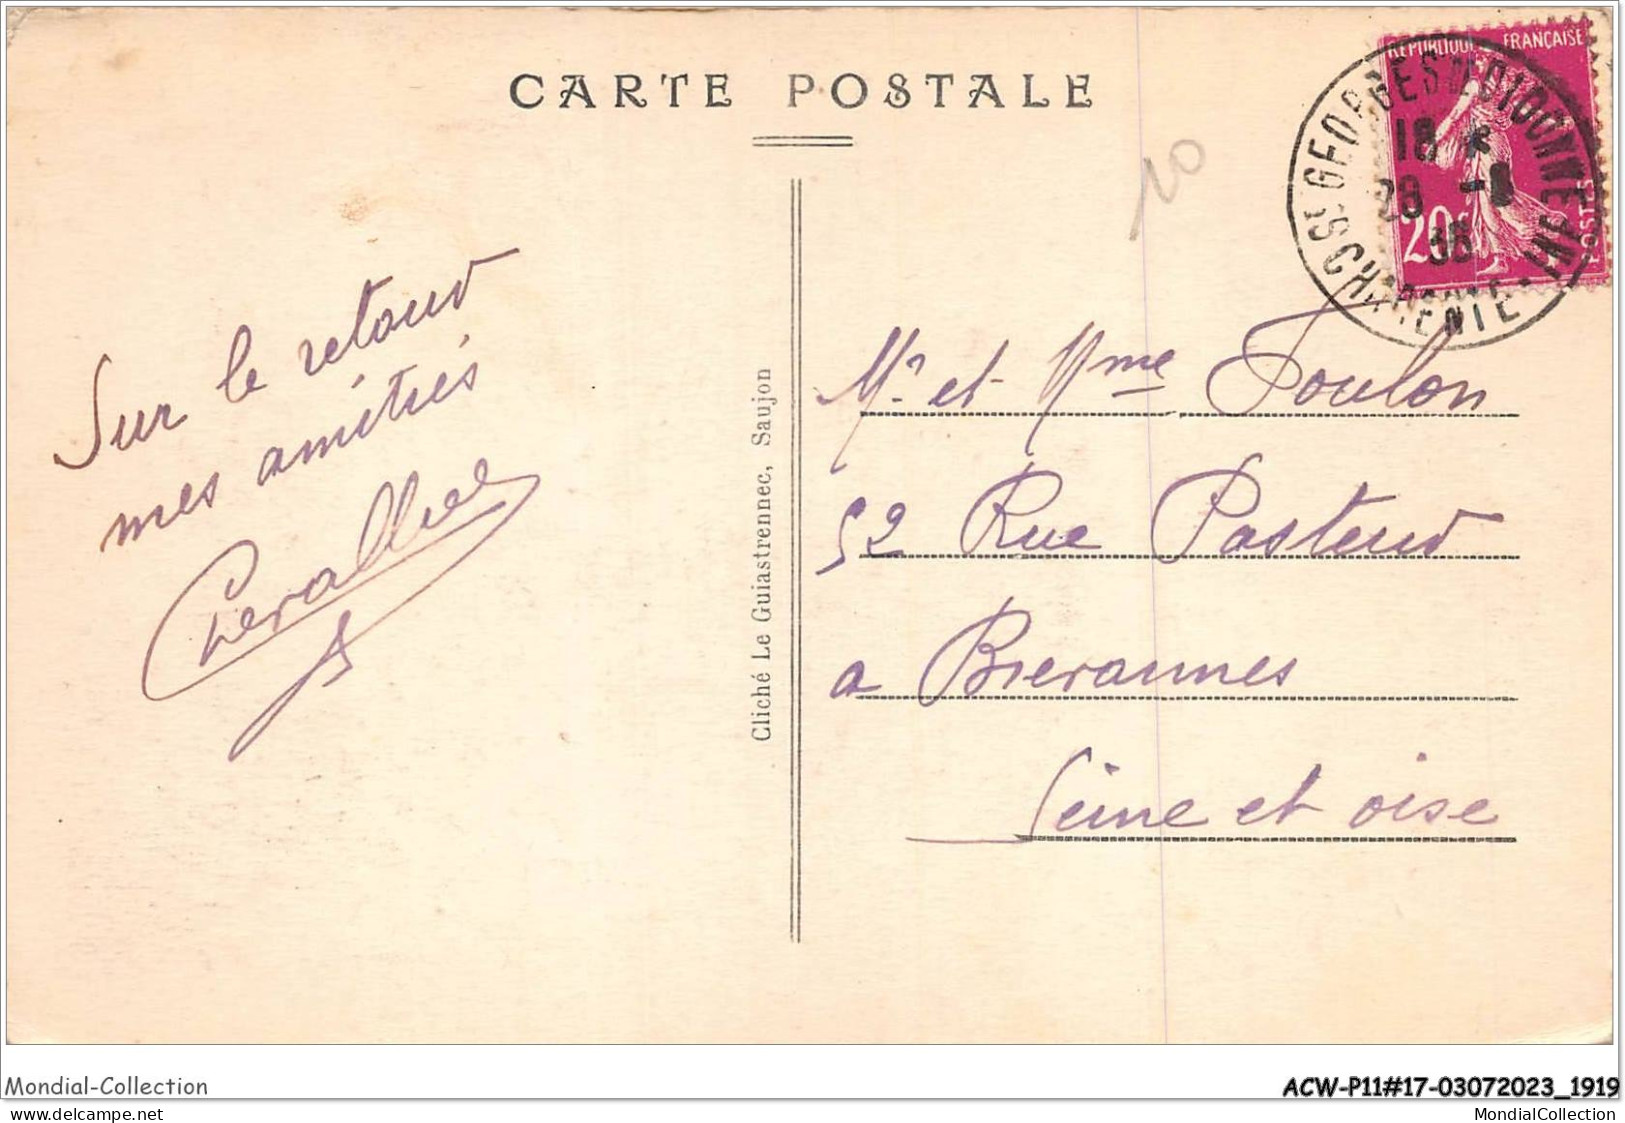 CARTE POSTALE
RÉPUBLIQUE FRANÇAISE
POSTES
20c
ST GEORGES DE DIDONNE
CHARENTE INF
18
-8
36
10
Sur le retour
mes amitiés
Chevallier
Cliché Le Guiastrennec, Saujon
Mr et Mme Toulon
52 Rue Pasteur
a Bierannes
Seine et oise
Mondial-Collection
ACW-P11#17-03072023_1919
delcampe.net
MondialCollection